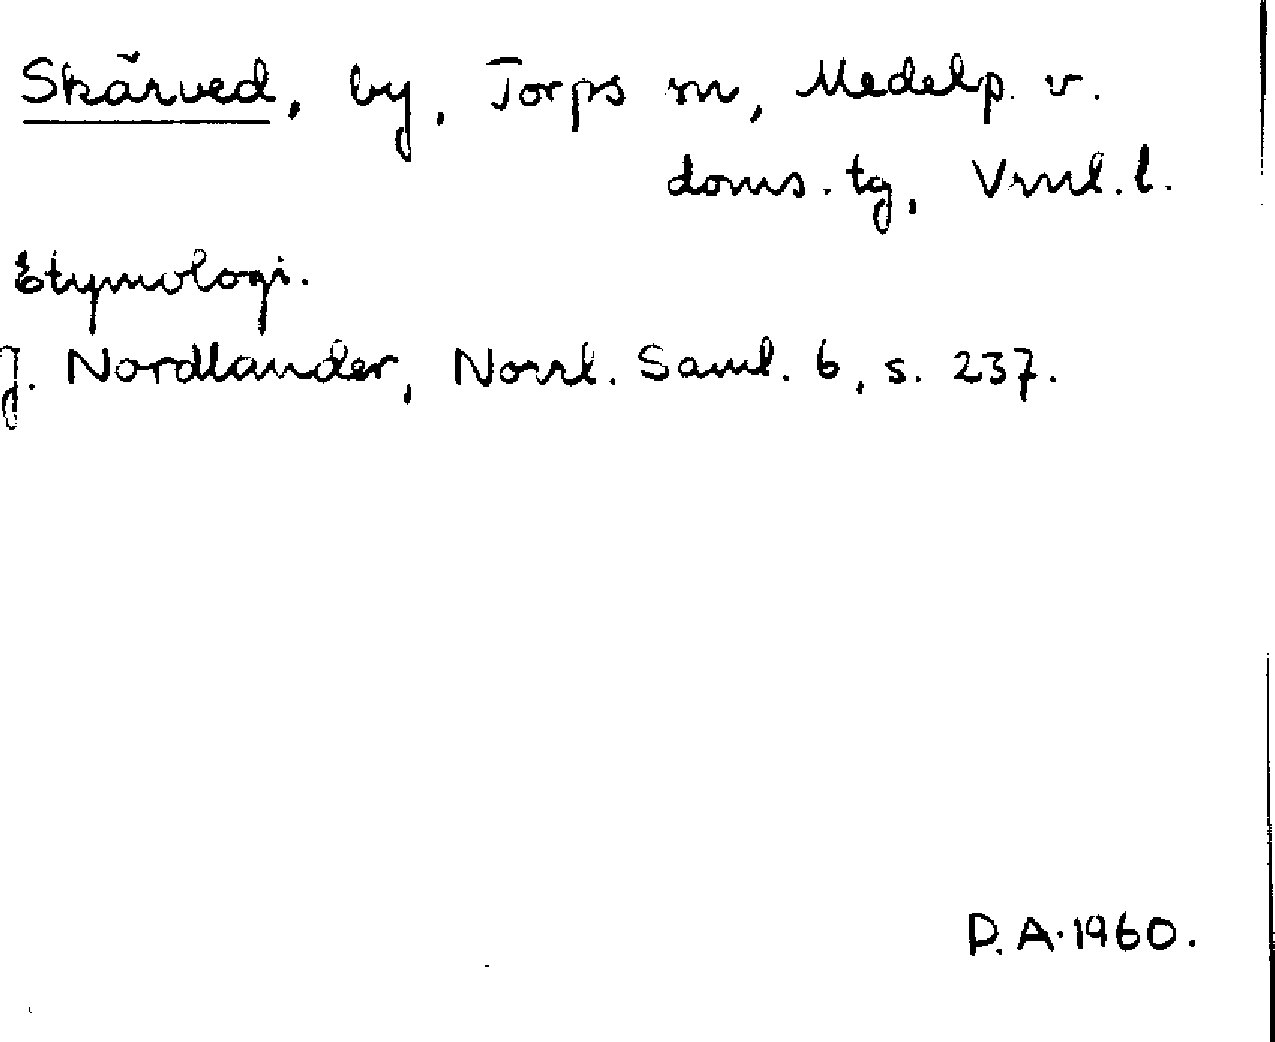 Skärved, by, Torps sn, Medelp. v.
doms. tg, Vrnl. l.
Etymologi.
J. Nordlander, Norrl. Saml. 6, s. 237.
D.A. 1960.